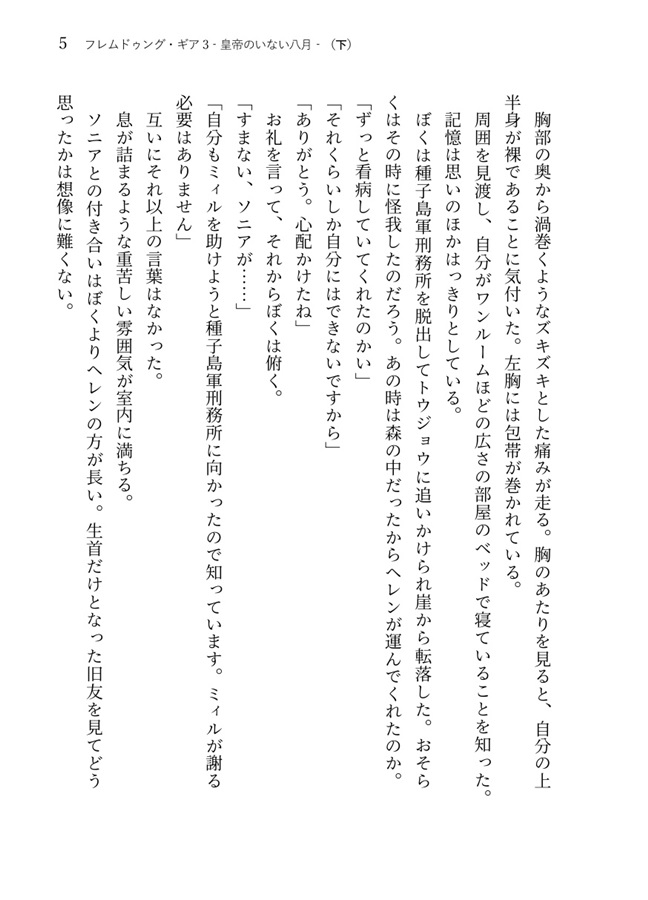 5 フレムドゥング・ギア3 - 皇帝のいない八月 - （下）
胸部の奥から渦巻くようなズキズキとした痛みが走る。胸のあたりを見ると、自分の上
半身が裸であることに気付いた。左胸には包帯が巻かれている。
周囲を見渡し、自分がワンルームほどの広さの部屋のベッドで寝ていることを知った。
記憶は思いのほかはっきりとしている。
ぼくは種子島軍刑務所を脱出してトウジョウに追いかけられ崖から転落した。おそら
くはその時に怪我したのだろう。あの時は森の中だったからヘレンが運んでくれたのか。
「ずっと看病していてくれたのかい」
「それくらいしか自分にはできないですから」
「ありがとう。心配かけたね」
お礼を言って、それからぼくは俯く。
「すまない、ソニアが……」
「自分もミィルを助けようと種子島軍刑務所に向かったので知っています。ミィルが謝る
必要はありません」
互いにそれ以上の言葉はなかった。
息が詰まるような重苦しい雰囲気が室内に満ちる。
ソニアとの付き合いはぼくよりヘレンの方が長い。生首だけとなった旧友を見てどう
思ったかは想像に難くない。